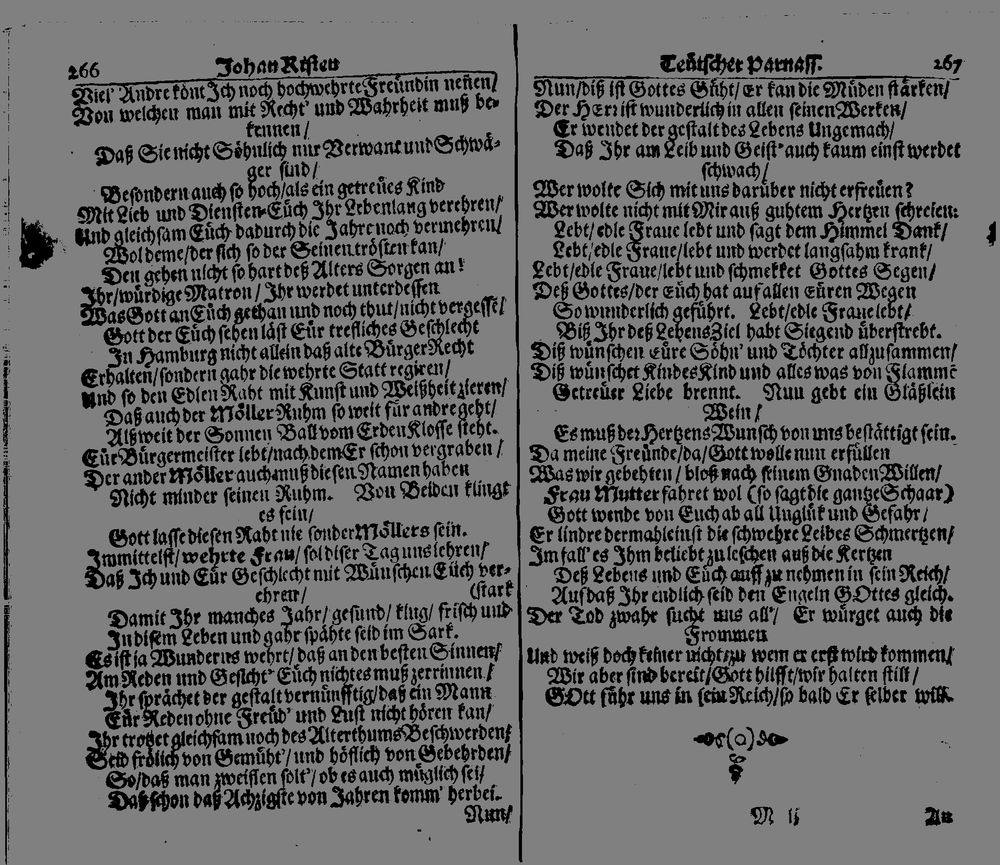 266 Johan Risten
Viel' Andre könt Ich noch hochwehrte Freündin neñen/
Von welchen man mit Recht' und Wahrheit muß be-
kennen/
Daß Sie nicht Söhnlich nur Verwant und Schwä-
ger sind/
Besondern auch so hoch/als ein getreües Kind
Mit Lieb und Diensten Eüch Ihr Lebenlang verehren/
Und gleichsam Eüch dadurch die Jahre noch vermehren/
Wol deme/der sich so der Seinen trösten kan/
Den gehen nicht so hart deß Alters Sorgen an!
Ihr/würdige Matron/ Ihr werdet unterdessen
Was Gott an Eüch gethan und noch thut/nicht vergesse/
Gott der Eüch sehen läst Eür trefliches Geschlecht
In Hamburg nicht allein daß alte Bürger Recht
Erhalten/sondern gahr die wehrte Statt regiren/
Und so den Edlen Raht mit Kunst und Weißheit zieren/
Daß auch der Möller Ruhm so weit für andre geht/
Alß weit der Sonnen Ball vom Erden Klosse steht.
Eür Bürgermeister lebt/nach dem Er schon vergraben/
Der ander Möller auch muß diesen Namen haben
Nicht minder seinen Ruhm. Von Beiden klingt
es fein/
Gott lasse diesen Raht nie sonder Möllers sein.
Immittelst/wehrte Frau/sol diser Tag uns lehren/
Daß Ich und Eür Geschlecht mit Wünschen Eüch ver-
ehren/ (stark
Damit Ihr manches Jahr/gesund/klug/frisch und
In disem Leben und gahr spähte seid im Sark.
Es ist ja Wunderns wehrt/daß an den besten Sinnen/
Am Reden und Gesicht' Eüch nichtes muß zerrinnen/
Ihr sprächet der gestalt vernünfftig/daß ein Mann
Eür Reden ohne Freüd' und Lust nicht hören kan/
Ihr trotzet gleichsam noch des Alterthums Beschwerden/
Seid frölich von Gemüht'/und höflich von Gebehrden/
So/daß man zweiflen solt'/ob es auch müglich sei/
Daß schon daß Achzigste von Jahren komm' herbei.
Nun/
Teütscher Parnass. 267
Nun/diß ist Gottes Güht/Er kan die Müden stärken/
Der Herr ist wunderlich in allen seinen Werken/
Er wendet der gestalt des Lebens Ungemach/
Daß Ihr am Leib und Geist' auch kaum einst werdet
schwach/
Wer wolte Sich mit uns darüber nicht erfreüen?
Wer wolte nicht mit Mir auß guhtem Hertzen schreien:
Lebt/edle Fraue lebt und sagt dem Himmel Dank/
Lebt/edle Fraue/lebt und werdet langsahm krank/
Lebt/edle Fraue/lebt und schmekket Gottes Segen/
Deß Gottes/der Eüch hat auf allen Eüren Wegen
So wunderlich geführt. Lebt/edle Fraue lebt/
Biß Ihr deß Lebens Ziel habt Siegend überstrebt.
Diß wünschen Eüre Söhn' und Töchter allzusammen/
Diß wünschet Kindes Kind und alles was von Flamme
Getreüer Liebe brennt. Nun gebt ein Gläßlein
Wein/
Es muß der Hertzens Wunsch von uns bestättigt sein.
Da meine Freünde/da/Gott wolle nun erfüllen
Was wir gebehten/bloß nach seinem Gnaden Willen/
Frau Mutter fahret wol (so sagt die gantze Schaar)
Gott wende von Euch ab all Unglük und Gefahr/
Er lindre dermahleinst die schwehre Leibes Schmertzen/
Im fall' es Ihm beliebt zu leschen auß die Kertzen
Deß Lebens und Eüch auff zu nehmen in sein Reich/
Auf daß Ihr endlich seid den Engeln GOttes gleich.
Der Tod zwahr sucht uns all'/ Er würget auch die
Frommen
Und weiß doch keiner nicht/zu wem er erst wird kommen/
Wir aber sind bereit/Gott hilfft/wir halten still/
GOtt führ uns in sein Reich/so bald Er selber will.
M ij An